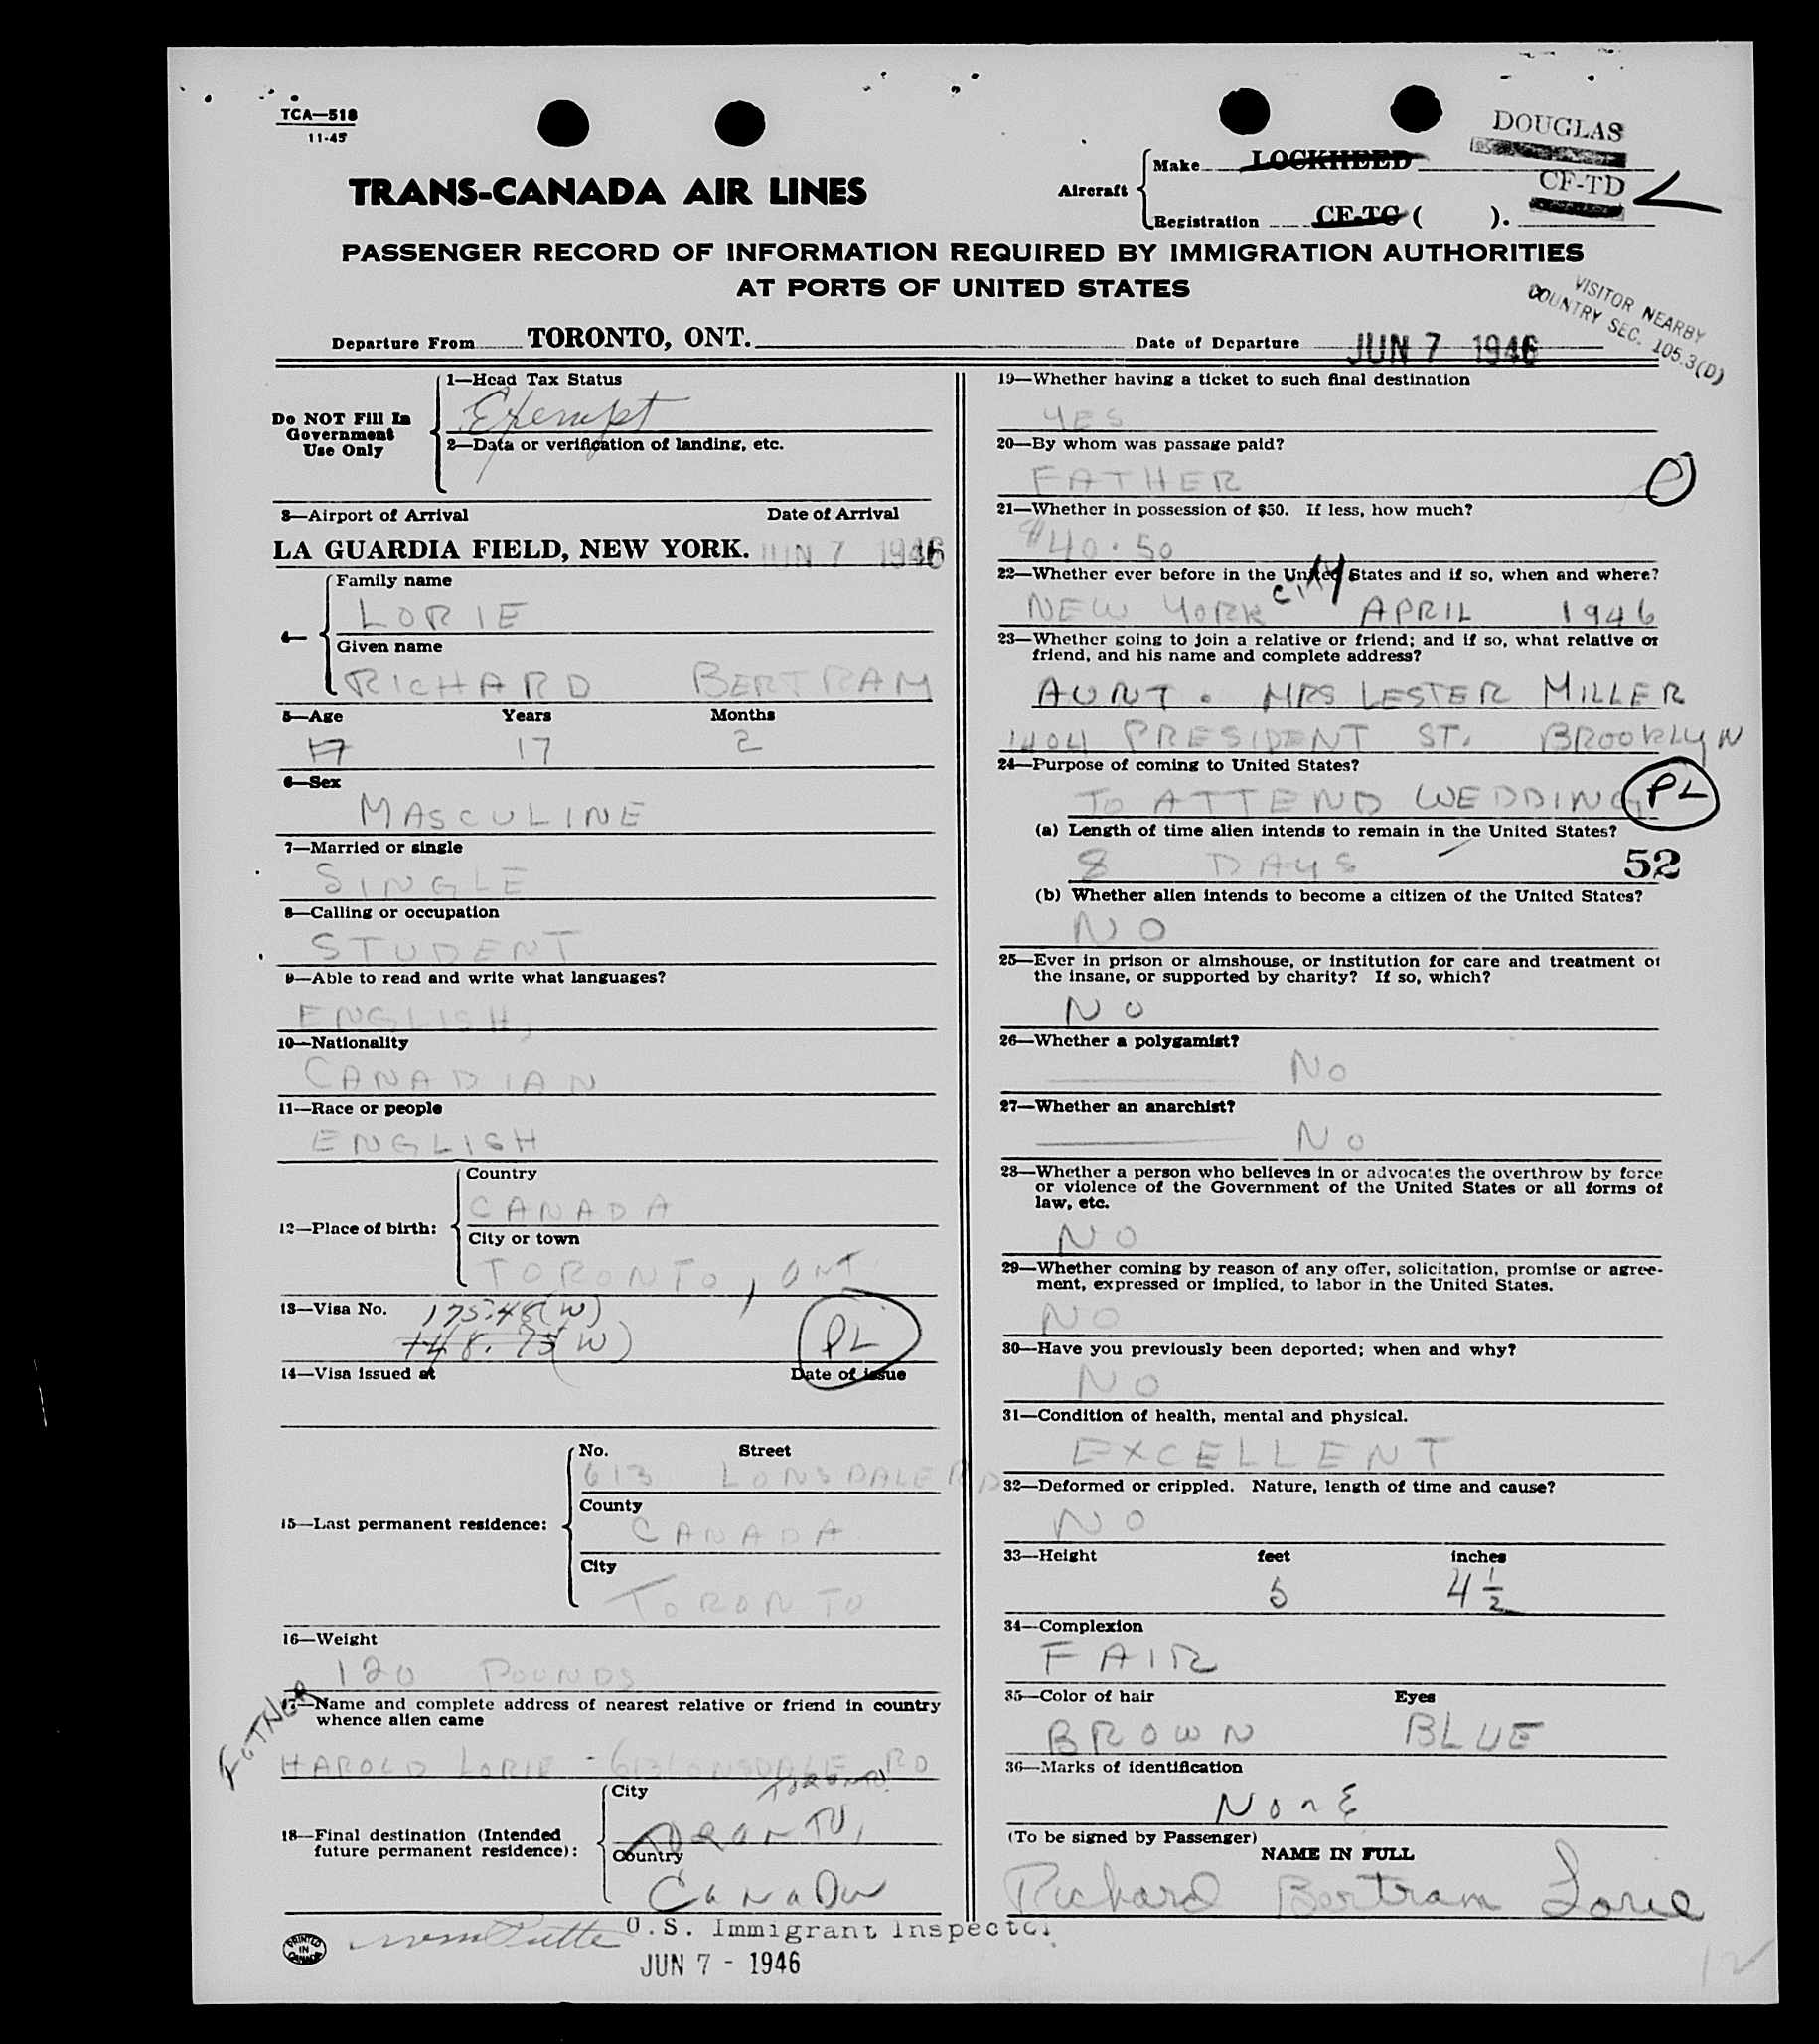 TCA—518
11-45
DOUGLAS
TRANS-CANADA AIR LINES
Aircraft
Make LOCKHEED
CF-TD
Registration CF-TC ( ).
PASSENGER RECORD OF INFORMATION REQUIRED BY IMMIGRATION AUTHORITIES
AT PORTS OF UNITED STATES
VISITOR NEARBY
COUNTRY SEC. 105.3(D)
Departure From TORONTO, ONT.
Date of Departure JUN 7 1946
Do NOT Fill In
Government
Use Only
1—Head Tax Status
Exempt
2—Data or verification of landing, etc.
3—Airport of Arrival Date of Arrival
LA GUARDIA FIELD, NEW YORK. JUN 7 1946
4—
Family name
LORIE
Given name
RICHARD BERTRAM
5—Age Years Months
17 17 2
6—Sex
MASCULINE
7—Married or single
SINGLE
8—Calling or occupation
STUDENT
9—Able to read and write what languages?
ENGLISH,
10—Nationality
CANADIAN
11—Race or people
ENGLISH
12—Place of birth:
Country
CANADA
City or town
TORONTO, ONT
13—Visa No. 175.45(W)
148.75(W)
PL
14—Visa issued at Date of issue
15—Last permanent residence:
No. Street
613 LONSDALE RD
County
CANADA
City
TORONTO
16—Weight
120 POUNDS
17—Name and complete address of nearest relative or friend in country
whence alien came
FATHER
HAROLD LORIE - 613 LONSDALE RD
TORONTO
18—Final destination (Intended
future permanent residence):
City
TORONTO,
Country
CANADA
19—Whether having a ticket to such final destination
YES
20—By whom was passage paid?
FATHER
21—Whether in possession of $50. If less, how much?
$40.50
22—Whether ever before in the United States and if so, when and where?
NEW YORK city APRIL 1946
23—Whether going to join a relative or friend; and if so, what relative or
friend, and his name and complete address?
AUNT. MRS LESTER MILLER
1404 PRESIDENT ST. BROOKLYN
24—Purpose of coming to United States?
TO ATTEND WEDDING PL
(a) Length of time alien intends to remain in the United States?
8 DAYS 52
(b) Whether alien intends to become a citizen of the United States?
NO
25—Ever in prison or almshouse, or institution for care and treatment of
the insane, or supported by charity? If so, which?
NO
26—Whether a polygamist?
NO
27—Whether an anarchist?
NO
28—Whether a person who believes in or advocates the overthrow by force
or violence of the Government of the United States or all forms of
law, etc.
NO
29—Whether coming by reason of any offer, solicitation, promise or agree-
ment, expressed or implied, to labor in the United States.
NO
30—Have you previously been deported; when and why?
NO
31—Condition of health, mental and physical.
EXCELLENT
32—Deformed or crippled. Nature, length of time and cause?
NO
33—Height feet inches
5 4 1/2
34—Complexion
FAIR
35—Color of hair Eyes
BROWN BLUE
36—Marks of identification
NONE
(To be signed by Passenger)
NAME IN FULL
Richard Bertram Lorie
U.S. Immigrant Inspector
JUN 7 - 1946
PRINTED
IN
CANADA
12